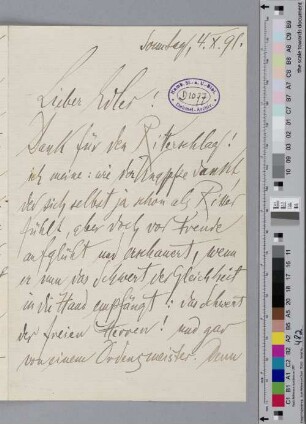 Sonntag, 4.X.91.
Lieber Adler!
Dank für den Ritterschlag!
ich meine: wie der Knappe dankt
der sich selbst ja schon als Ritter
fühlt, aber doch vor Freude
aufglüht und, wenn
er nun das Schwert der Gleichheit
in die Hand empfängt: das Schwert
der freien Herren! und gar
von einem Ordensmeister. Denn
D1077
492